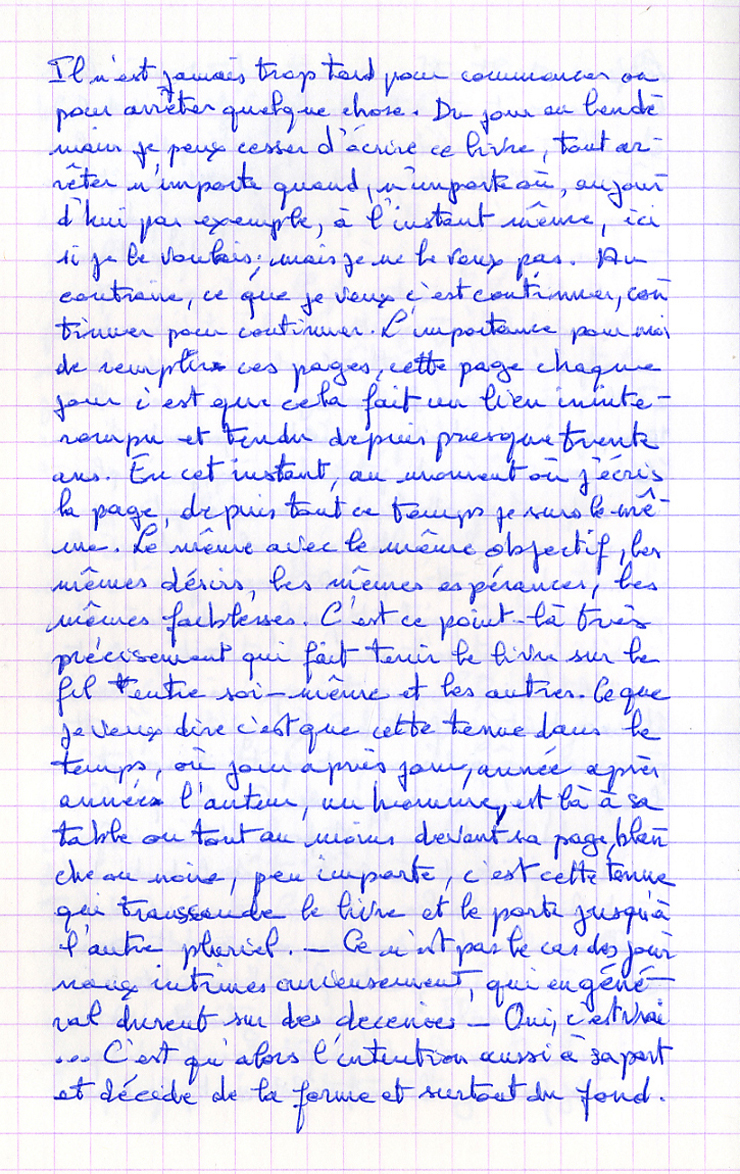 Il n'est jamais trop tard pour commencer ou
pour arrêter quelque chose. Du jour au lende
main je peux cesser d'écrire ce livre, tout ar-
rêter n'importe quand, n'importe où, aujour
d'hui par exemple, à l'instant même, ici
si je le voulais; mais je ne le veux pas. Au
contraire, ce que je veux c'est continuer, con
tinuer pour continuer. L'importance pour moi
de remplir ces pages, cette page chaque
jour c'est que cela fait un lien ininte-
rompu et tendu depuis presque trente
ans. En cet instant, au moment où j'écris
la page, depuis tout ce temps je suis le mê-
me. Le même avec le même objectif, les
mêmes désirs, les mêmes espérances, les
mêmes faiblesses. C'est ce point-là très
précisement qui fait tenir le livre sur le
fil entre soi-même et les autres. Ce que
je veux dire c'est que cette tenue dans le
temps, où jour après jour, année après
année l'auteur, un homme, est là à sa
table ou tout au moins devant sa page, blan
che ou noire, peu importe, c'est cette tenue
qui transcende le livre et le porte jusqu'à
l'autre pluriel. — Ce n'est pas le cas des jour
naux intimes curieusement, qui en géné-
ral durent sur des decenies — Oui, c'est vrai
... C'est qu'alors l'intention aussi a sa part
et décide de la forme et surtout du fond.